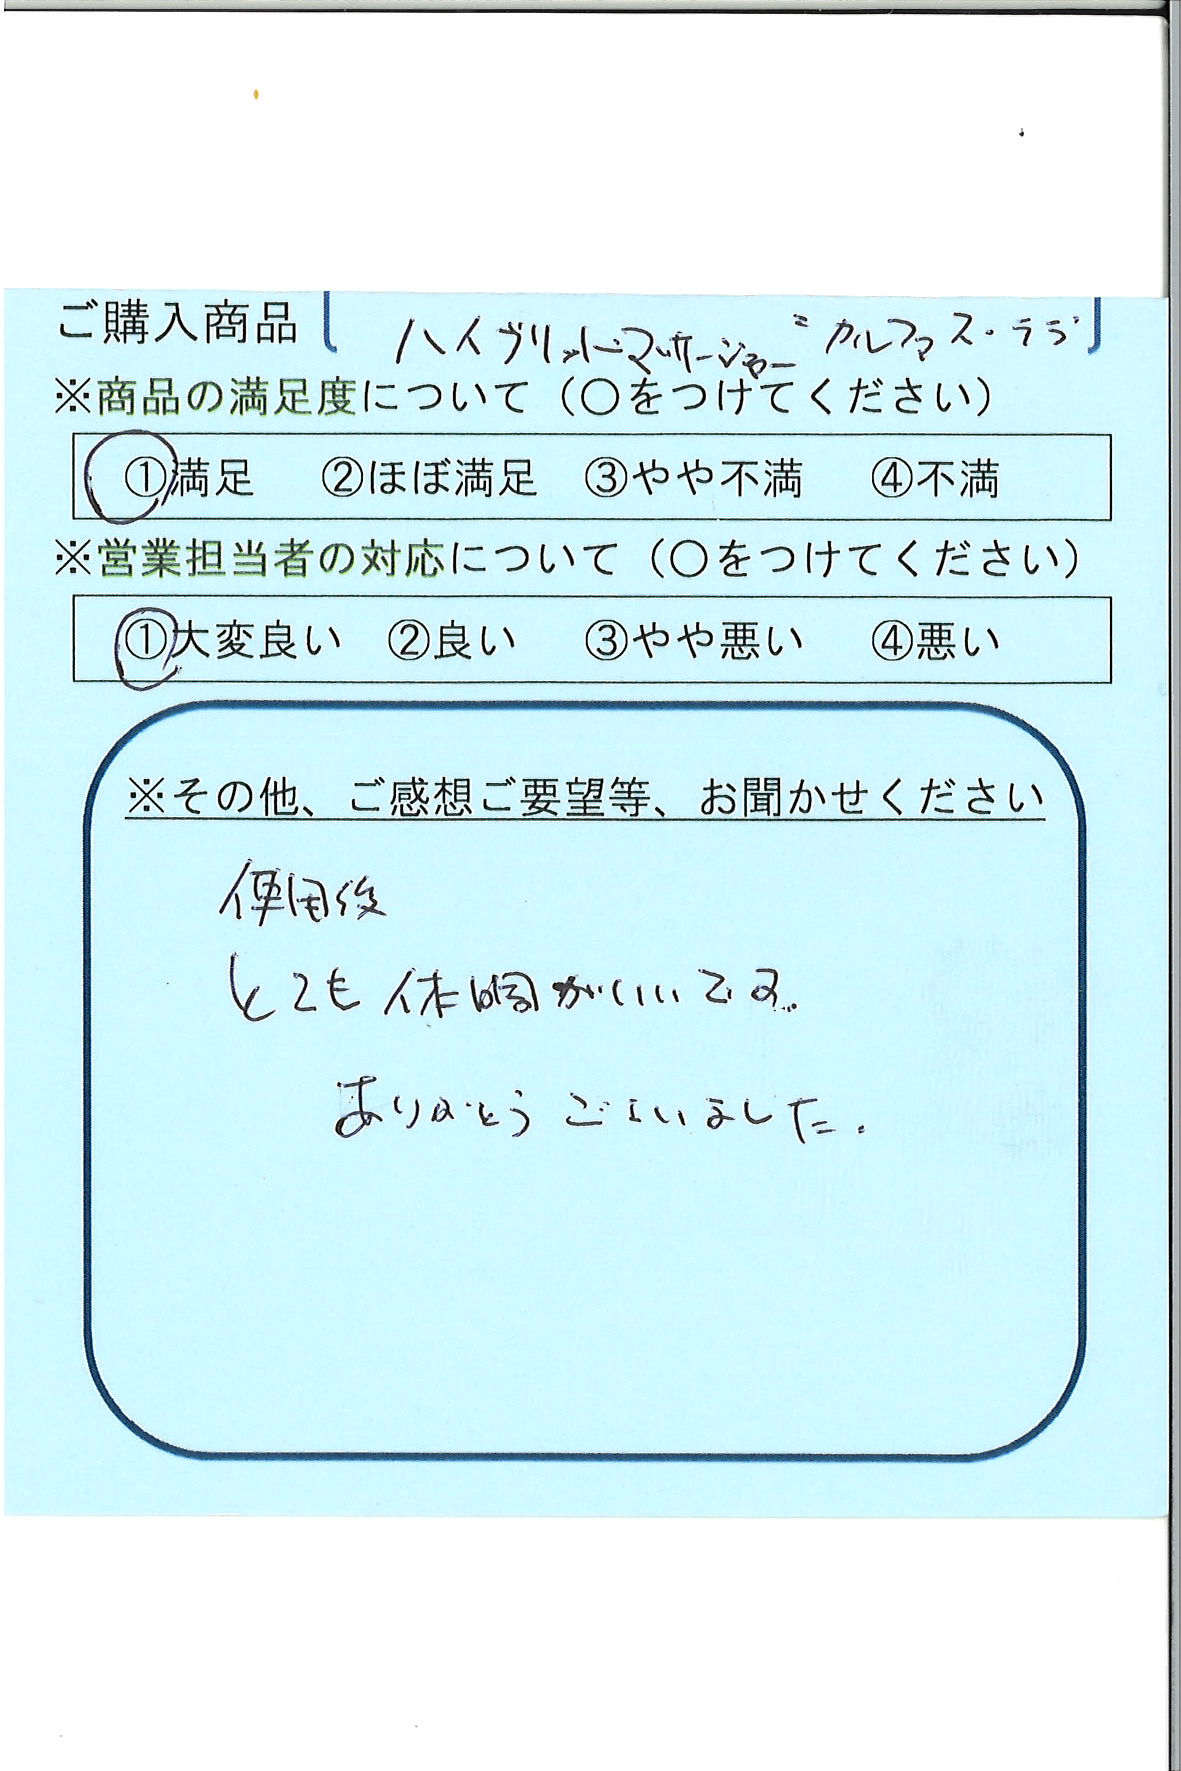 ご購入商品 [ ハイブリッドマッサージャー "カルファス・ララ" ]
※商品の満足度について（○をつけてください）
①満足 ②ほぼ満足 ③やや不満 ④不満
※営業担当者の対応について（○をつけてください）
①大変良い ②良い ③やや悪い ④悪い
※その他、ご感想ご要望等、お聞かせください
使用後
とても体調がいいです。
ありがとうございました。